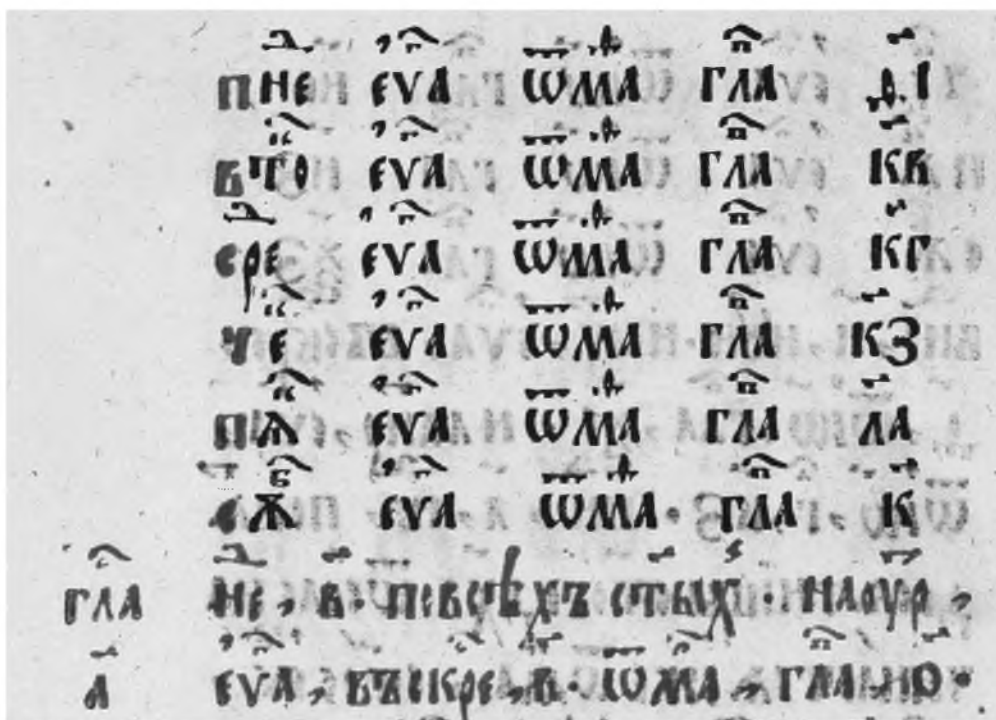 пнⷣе еѵⷢ҇а ѿ маⷴ глⷡ҇а д҃і
втⷦ҇о еѵⷢ҇а ѿ маⷴ глⷡ҇а к҃в
срⷣе еѵⷢ҇а ѿ маⷴ глⷡ҇а к҃г
чⷦ҇е еѵⷢ҇а ѿ маⷴ глⷡ҇а к҃з
пⷦ҇ѧ еѵⷢ҇а ѿ маⷴ глⷡ҇а л҃а
сⷠ҇ѫ еѵⷢ҇а ѿ маⷴ · глⷡ҇а к҃
глⷭ҇а нⷣе, в҃ · по всѣхъ ст҃ыⷯ · на оуⷮр,
а҃ еѵⷢ҇а, въскрⷭ҇е, в҃ · ѿ маⷴ, глⷡ҇а,